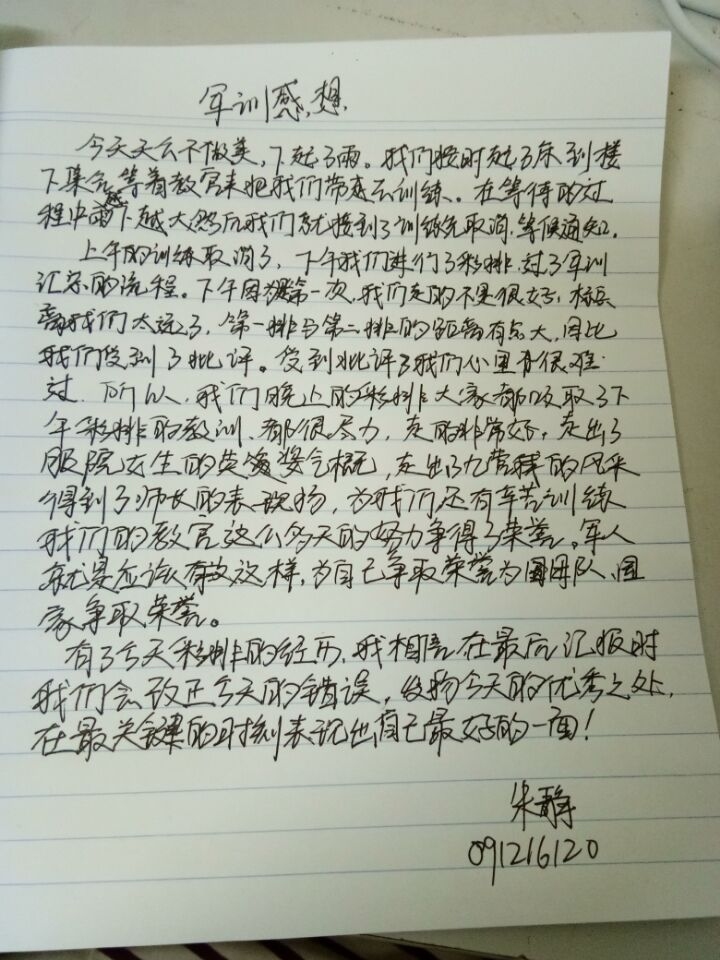 军训感想
今天天公不做美，下起了雨。我们按时起了床到楼
下集合等着教官来把我们带去训练。在等待的过
程中雨越下越大然后我们就接到了训练先取消，等候通知。
上午的训练取消了，下午我们进行了彩排，过了军训
汇报的流程。下午因为第一次，我们走的不是很好，标兵
离我们太远了，第一排与第二排的距离有点大，因此
我们受到了批评。受到批评了我们心里有很难
过，所以，我们晚上的彩排大家都吸取了下
午彩排的教训，都很尽力，走的非常好，走出了
服院女生的英姿气概，走出了九营的风采
得到了师长的表扬，为我们还有辛苦训练
我们的教官这么多天的努力争得了荣誉。军人
就是应该有这样，为自己争取荣誉为团队、国
家争取荣誉。
有了今天彩排的经历，我相信在最后汇报时
我们会改正今天的错误，发扬今天的优秀之处，
在最关键的时刻表现出自己最好的一面！
朱静
091216120